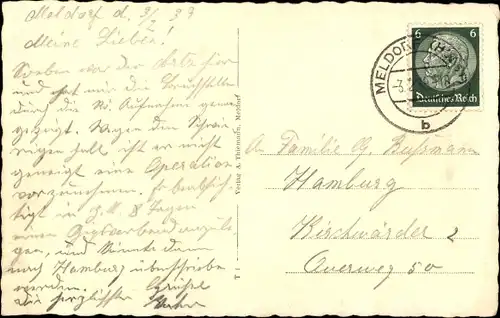 Meldorf d. 3/2 37
Meine Lieben!
Soeben war der Arzt hier
und hat mir die Bruchstelle
durch die Rö. Aufnahme genau
gezeigt. Wegen den Schwie-
rigen halt ist er nicht
geneigt eine Operation
vorzunehmen. Er beabsich-
tigt in 8 Tagen
einen anzule-
gen, und könnte dann
nach Hamburg überschrieben
werden.
Die herzlichsten Grüße
Verlag A. Thiemann, Meldorf
MELDORF (HOLST)
b
6 6
Deutsches Reich
An Familie Bußmann
Hamburg
Kirchwärder 2
Overweg 50